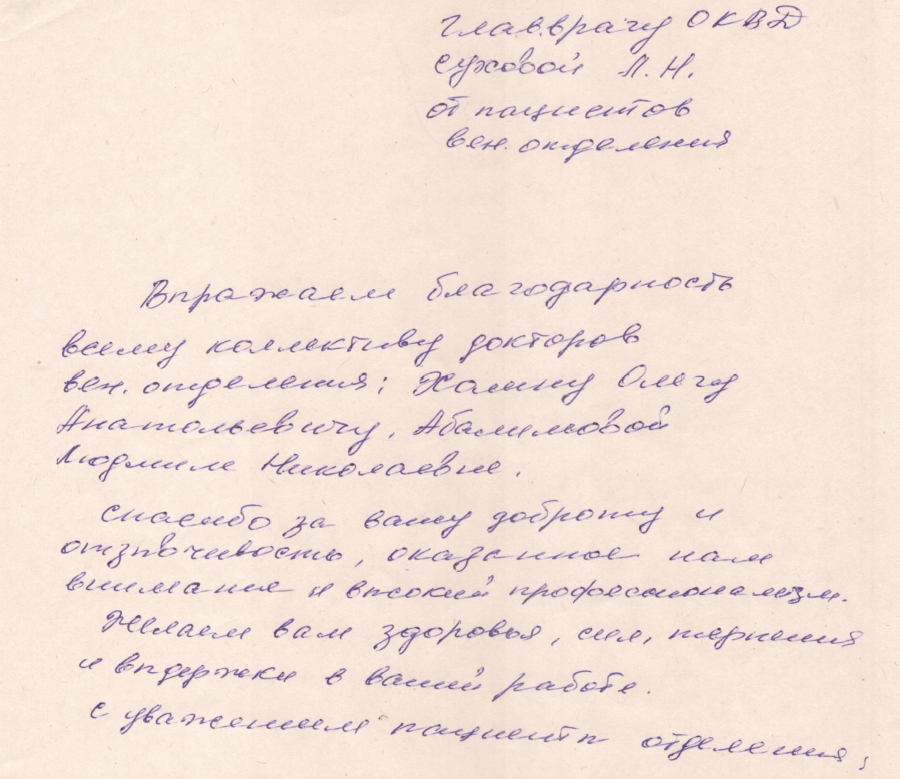 Глав.врачу ОКВД
Суховой Л.Н.
от пациентов
вен. отделения
Выражаем благодарность
всему коллективу докторов
вен. отделения: Халину Олегу
Анатольевичу, Абалимовой
Людмиле Николаевне.
Спасибо за вашу доброту и
отзывчивость, оказанное нам
внимание и высокий профессионализм.
Желаем вам здоровья, сил, терпения
и выдержки в вашей работе.
С уважением пациенты отделения,